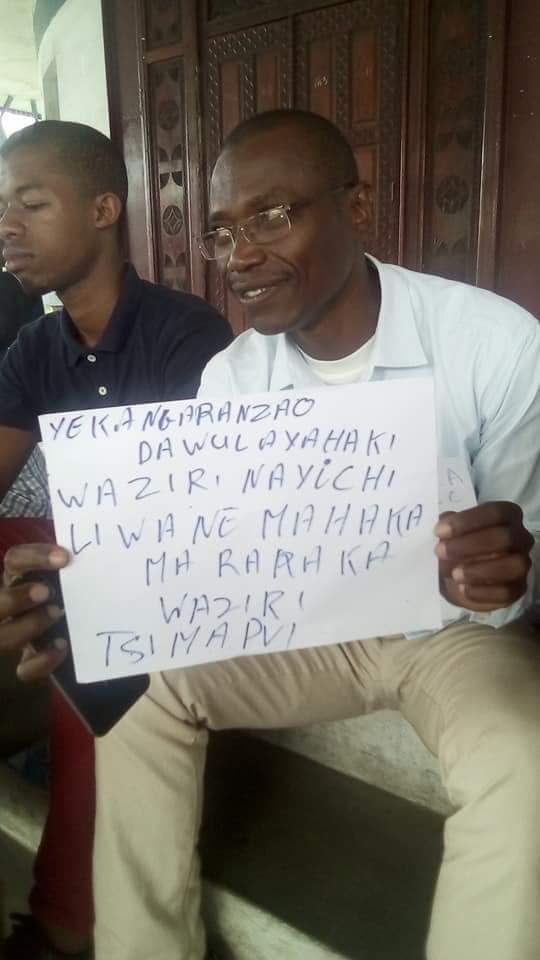 YEKANGARANZAO
DAWULAYAHAKI
WAZIRI NAYICHI
LIWANE MAHAKA
MA RAPAKA
WAZIRI
TSIMAPVI